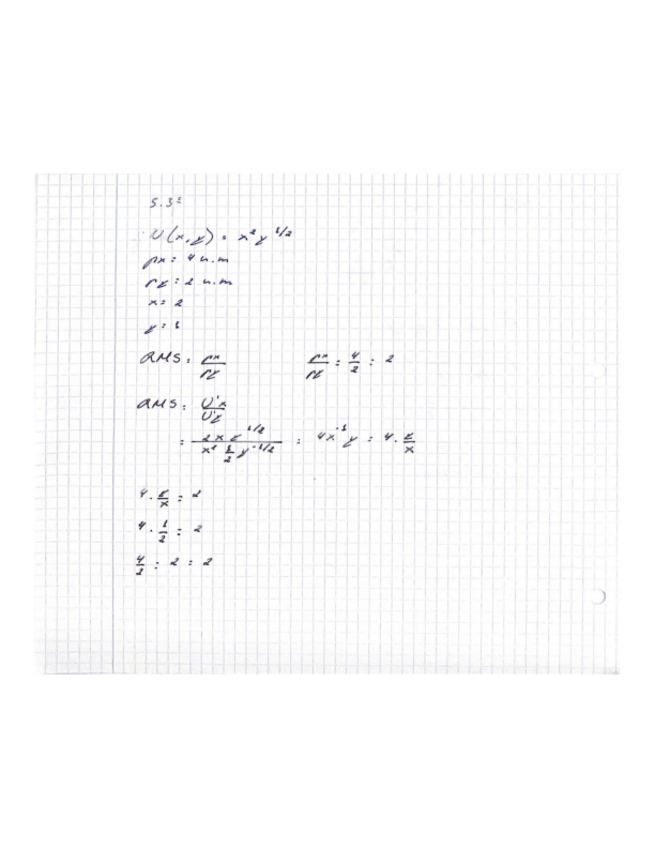 5.3:
U(x,y) = x² y^1/2
px = 4 u.m
py = 2 u.m
x = 2
y = 1
RMS = px/py    px/py = 4/2 = 2
RMS = U'x/U'y
= 2x y^1/2 / x² 1/2 y^-1/2 = 4x^-1 y = 4 · y/x
4 · y/x = 2
4 · 1/2 = 2
4/2 = 2 = 2